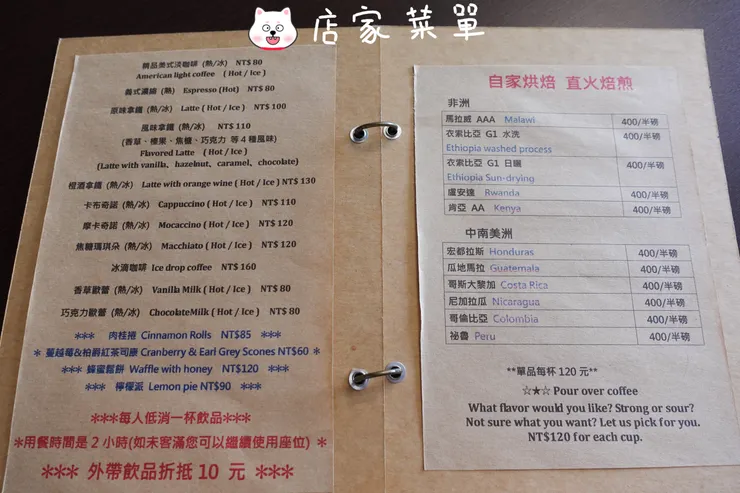 店家菜單
精品美式淡咖啡 (熱/冰) NT$ 80
American light coffee ( Hot / Ice )
義式濃縮 (熱) Espresso (Hot) NT$ 80
原味拿鐵 (熱/冰) Latte ( Hot / Ice ) NT$ 100
風味拿鐵 (熱/冰) NT$ 110
(香草、榛果、焦糖、巧克力 等 4 種風味)
Flavored Latte ( Hot / Ice )
(Latte with vanilla, hazelnut, caramel, chocolate)
橙酒拿鐵 (熱/冰) Latte with orange wine ( Hot / Ice ) NT$ 130
卡布奇諾 (熱/冰) Cappuccino ( Hot / Ice ) NT$ 110
摩卡奇諾 (熱/冰) Mocaccino ( Hot / Ice ) NT$ 120
焦糖瑪琪朵 (熱/冰) Macchiato ( Hot / Ice ) NT$ 120
冰滴咖啡 Ice drop coffee NT$ 160
香草歐蕾 (熱/冰) Vanilla Milk ( Hot / Ice ) NT$ 80
巧克力歐蕾 (熱/冰) ChocolateMilk ( Hot / Ice ) NT$ 80
*** 肉桂捲 Cinnamon Rolls NT$85 ***
* 蔓越莓&柏爵紅茶司康 Cranberry & Earl Grey Scones NT$60 *
*** 蜂蜜鬆餅 Waffle with honey NT$120 ***
*** 檸檬派 Lemon pie NT$90 ***
***每人低消一杯飲品***
*用餐時間是 2 小時(如未客滿您可以繼續使用座位) *
*** 外帶飲品折抵 10 元 ***
自家烘焙 直火焙煎
非洲
馬拉威 AAA Malawi 400/半磅
衣索比亞 G1 水洗 400/半磅
Ethiopia washed process
衣索比亞 G1 日曬 400/半磅
Ethiopia Sun-drying
盧安達 Rwanda 400/半磅
肯亞 AA Kenya 400/半磅
中南美洲
宏都拉斯 Honduras 400/半磅
瓜地馬拉 Guatemala 400/半磅
哥斯大黎加 Costa Rica 400/半磅
尼加拉瓜 Nicaragua 400/半磅
哥倫比亞 Colombia 400/半磅
祕魯 Peru 400/半磅
**單品每杯 120 元**
☆★☆ Pour over coffee
What flavor would you like? Strong or sour?
Not sure what you want? Let us pick for you.
NT$120 for each cup.